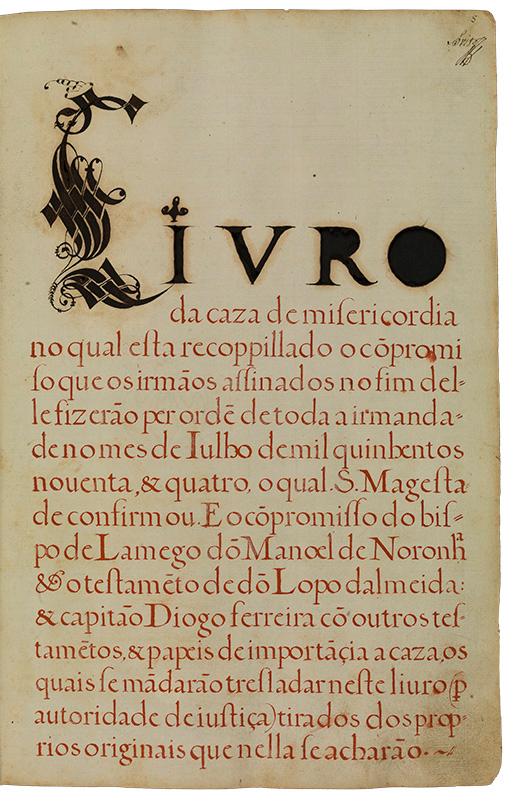 LIVRO
da caza de miſericordia
no qual eſta recoppillado o cõpromi
ſo que os irmãos aſſinados no fim del-
le fizerão per ordẽ de toda a irmanda-
de no mes de Iulho de mil quinhentos
nouenta, & quatro, o qual S. Mageſta
de confirmou. E o cõpromiſſo do biſ-
po de Lamego dõ Manoel de Noronhª
& o teſtamẽto de dõ Lopo dalmeida:
& capitão Diogo ferreira cõ outros teſ-
tamẽtos, & papeis de importãçia a caza, os
quais ſe mãdarão treſladar neſte liuro (ꝑ
autoridade de iuſtiça) tirados dos prop-
rios originais que nella ſe acharão.